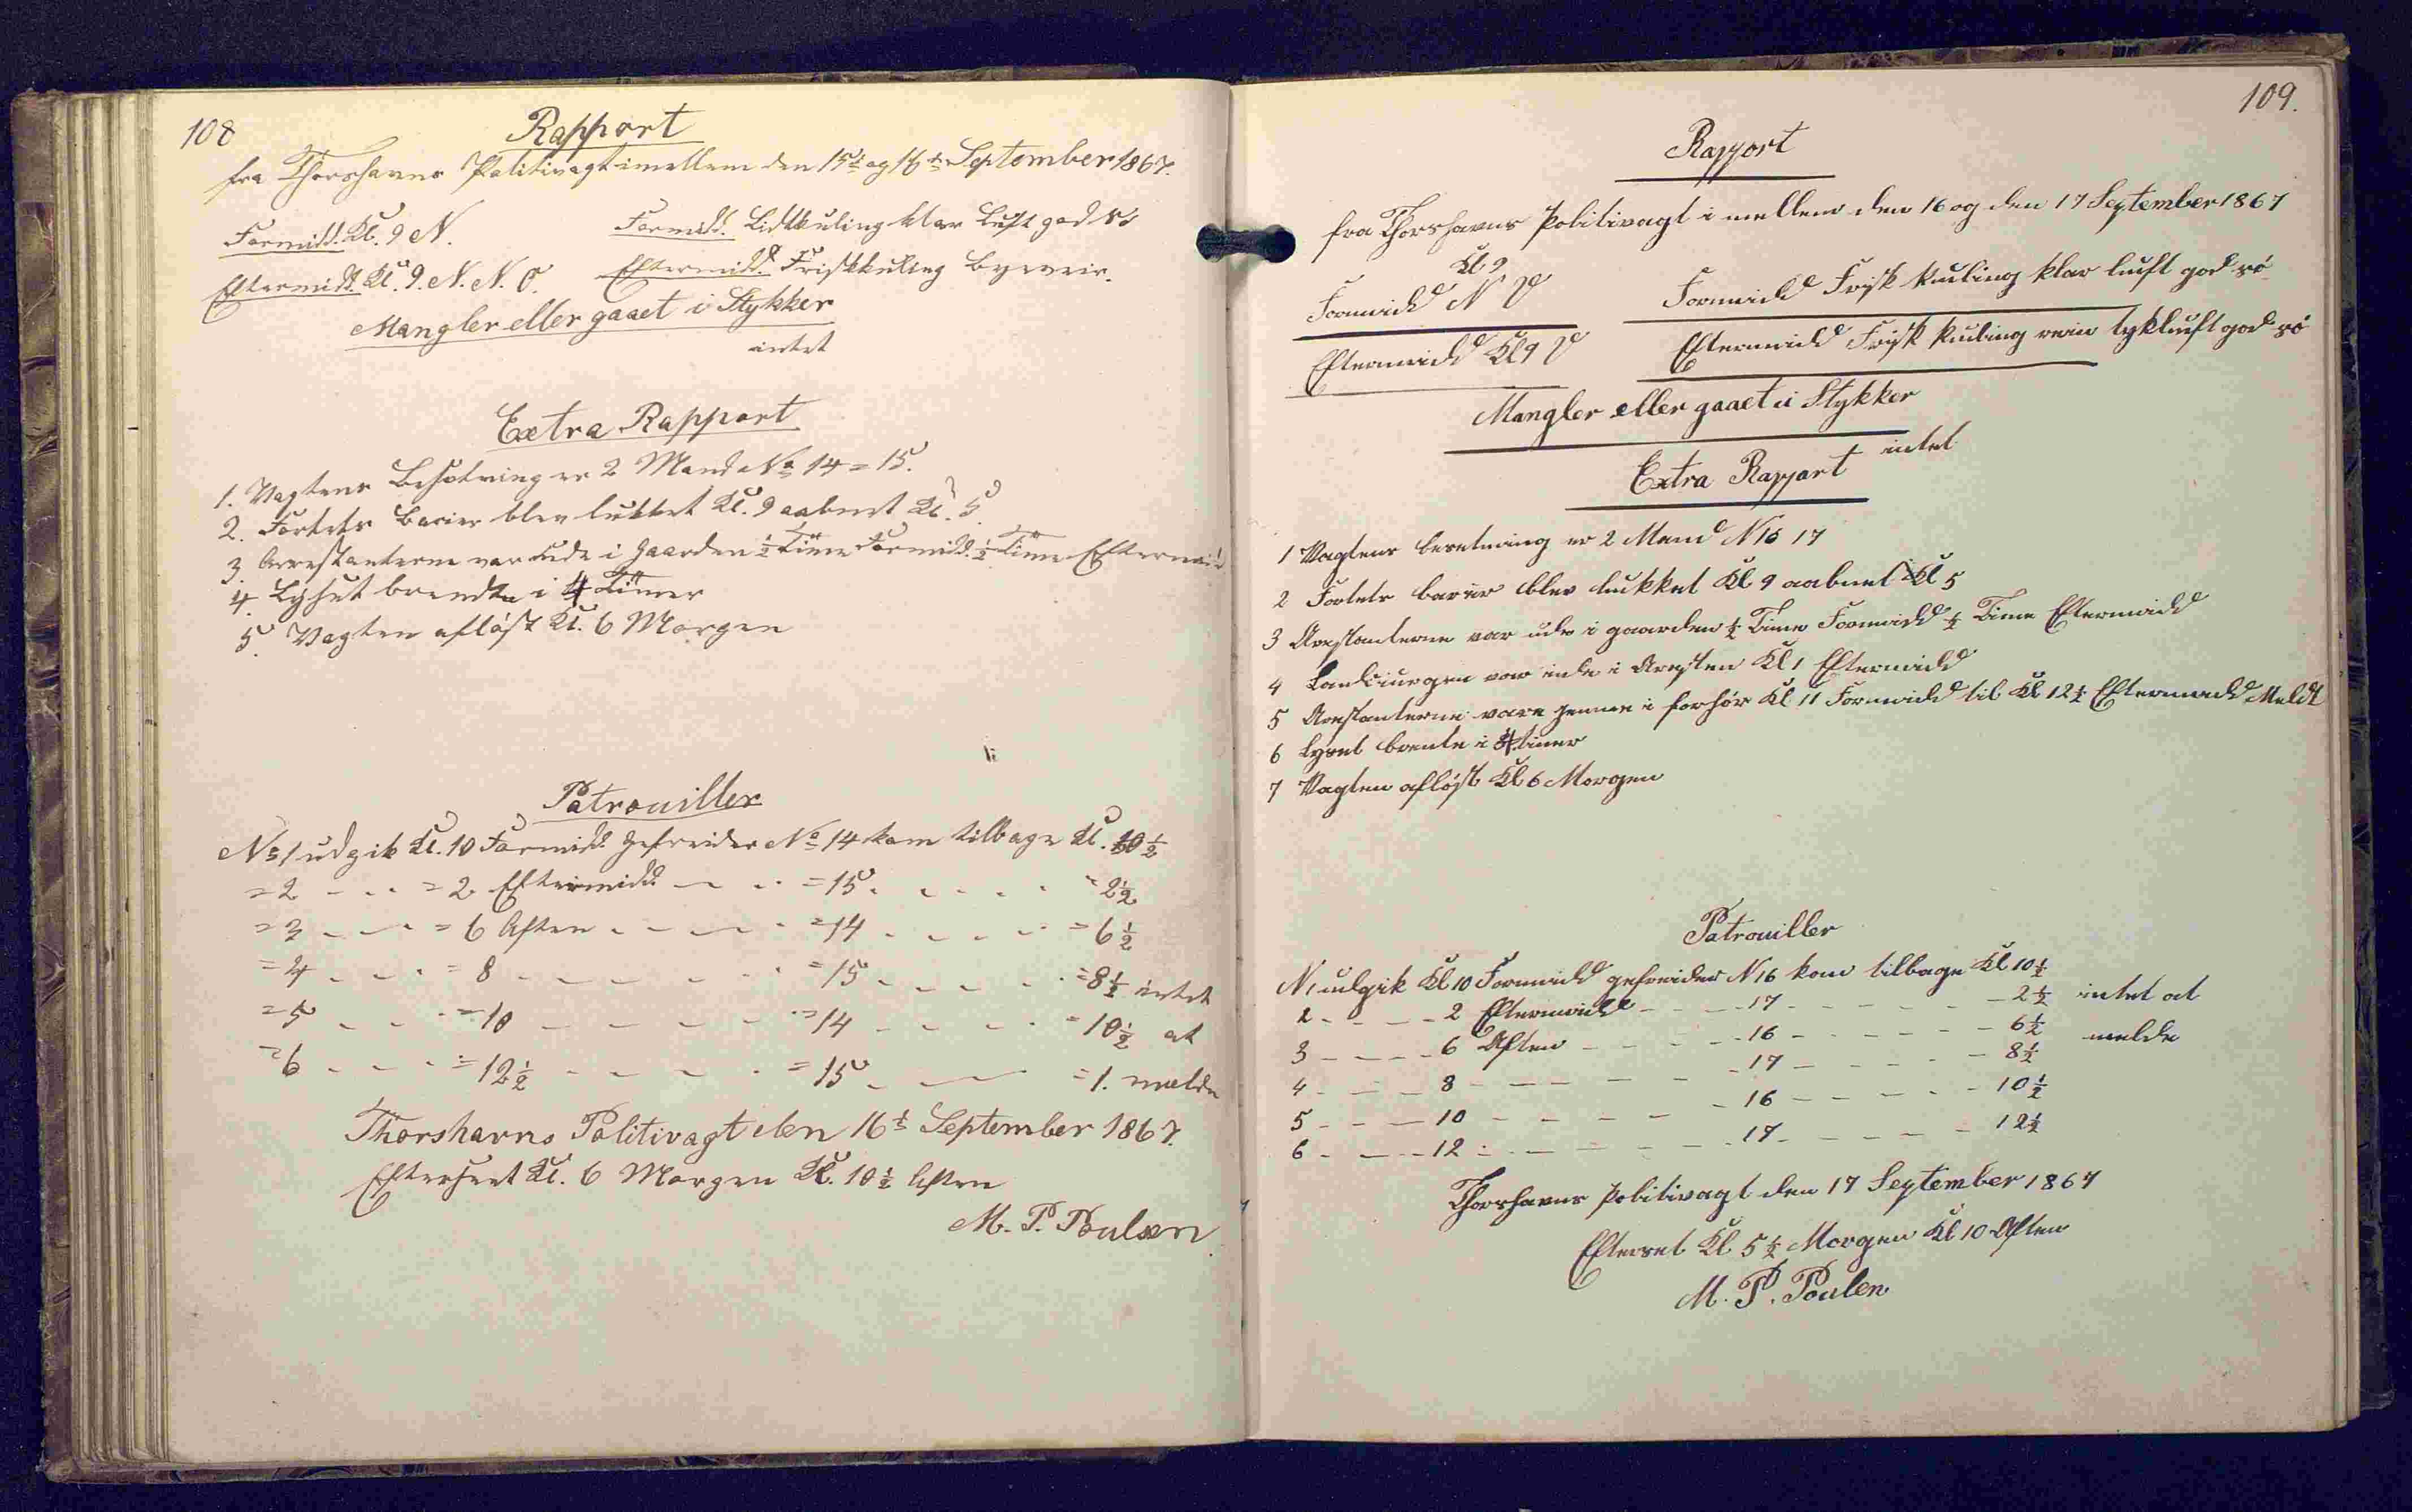 108
Rapport
fra Thorshavns Politivagt imellem den 15de og 16de September 1867.
Formidd. Kl. 9 N.
Formidd. Lidtkuling klar Luft god Sö
Eftermidd. Kl. 9. N. N. O.
Eftermidd. Friskkuling Byeveir.
Mangler eller gaaet i Stykker
intet
Extra Rapport
1. Vagtens Besætning er 2 Mand No 14 = 15.
2. Fortets Barier blev lukket Kl. 9 aabnet Kl. 5.
3. Arrestanterne var ude i Gaarden ½ Time Formidd. ½ Time Eftermid
4. Lyset brendte i 4 Timer
5. Vagten aflöst Kl. 6 Morgen
Patrouiller
No 1 udgik Kl. 10 Formidd. Gefreider No 14 kom tilbage Kl. 10½
= 2 - - - = 2 Eftermidd. - - - = 15. - - - - = 2½
= 3 - - - = 6 Aften - - - - = 14 - - - - = 6½
= 4 - - - = 8 - - - - - = 15 - - - - = 8½ intet
= 5 - - - = 10 - - - - - = 14 - - - - = 10½ at
= 6 - - - = 12½ - - - - = 15 - - - = 1. melde
Thorshavns Politivagt den 16de September 1867.
Efterseet Kl. 6 Morgen Kl. 10½ Aften
M. P. Poulsen
109.
Rapport
fra Thorshavns Politivagt i mellem den 16 og den 17 September 1867
Kl 9
Formidd N V
Formidd Frisk kuling klar luft god sö
Eftermidd Kl 9 V
Eftermidd Frisk kuling rein tykluft god sö
Mangler eller gaaet i Stykker
intet
Extra Rapport
1 Vagtens besetning er 2 Mand N 16 17
2 Fortets barier blev lukket Kl 9 aabnet Kl 5
3 Arestanterne var ude i gaarden ½ Time Formidd ½ Time Eftermidd
4 var inde i Aresten Kl 1 Eftermidd
5 Arestanterne vare i forhör Kl 11 Formidd til Kl 12½ Eftermidd Meldt
6 Lyset brente i 4 timer
7 Vagten aflöst Kl 6 Morgen
Patrouiller
N 1 udgik Kl 10 Formidd gefreider N 16 kom tilbage Kl 10½
2 - - - - 2 Eftermidd - - - 17 - - - - - 2½ intet at
3 - - - - 6 Aften - - - - - 16 - - - - - 6½ melde
4 - - - 8 - - - - - - 17 - - - - - 8½
5 - - - 10 - - - - - 16 - - - - - 10½
6 - - - 12 - - - - - - 17 - - - - - 12½
Thorshavns Politivagt den 17 September 1867
Efterset Kl 5½ Morgen Kl 10 Aften
M. P. Poulen